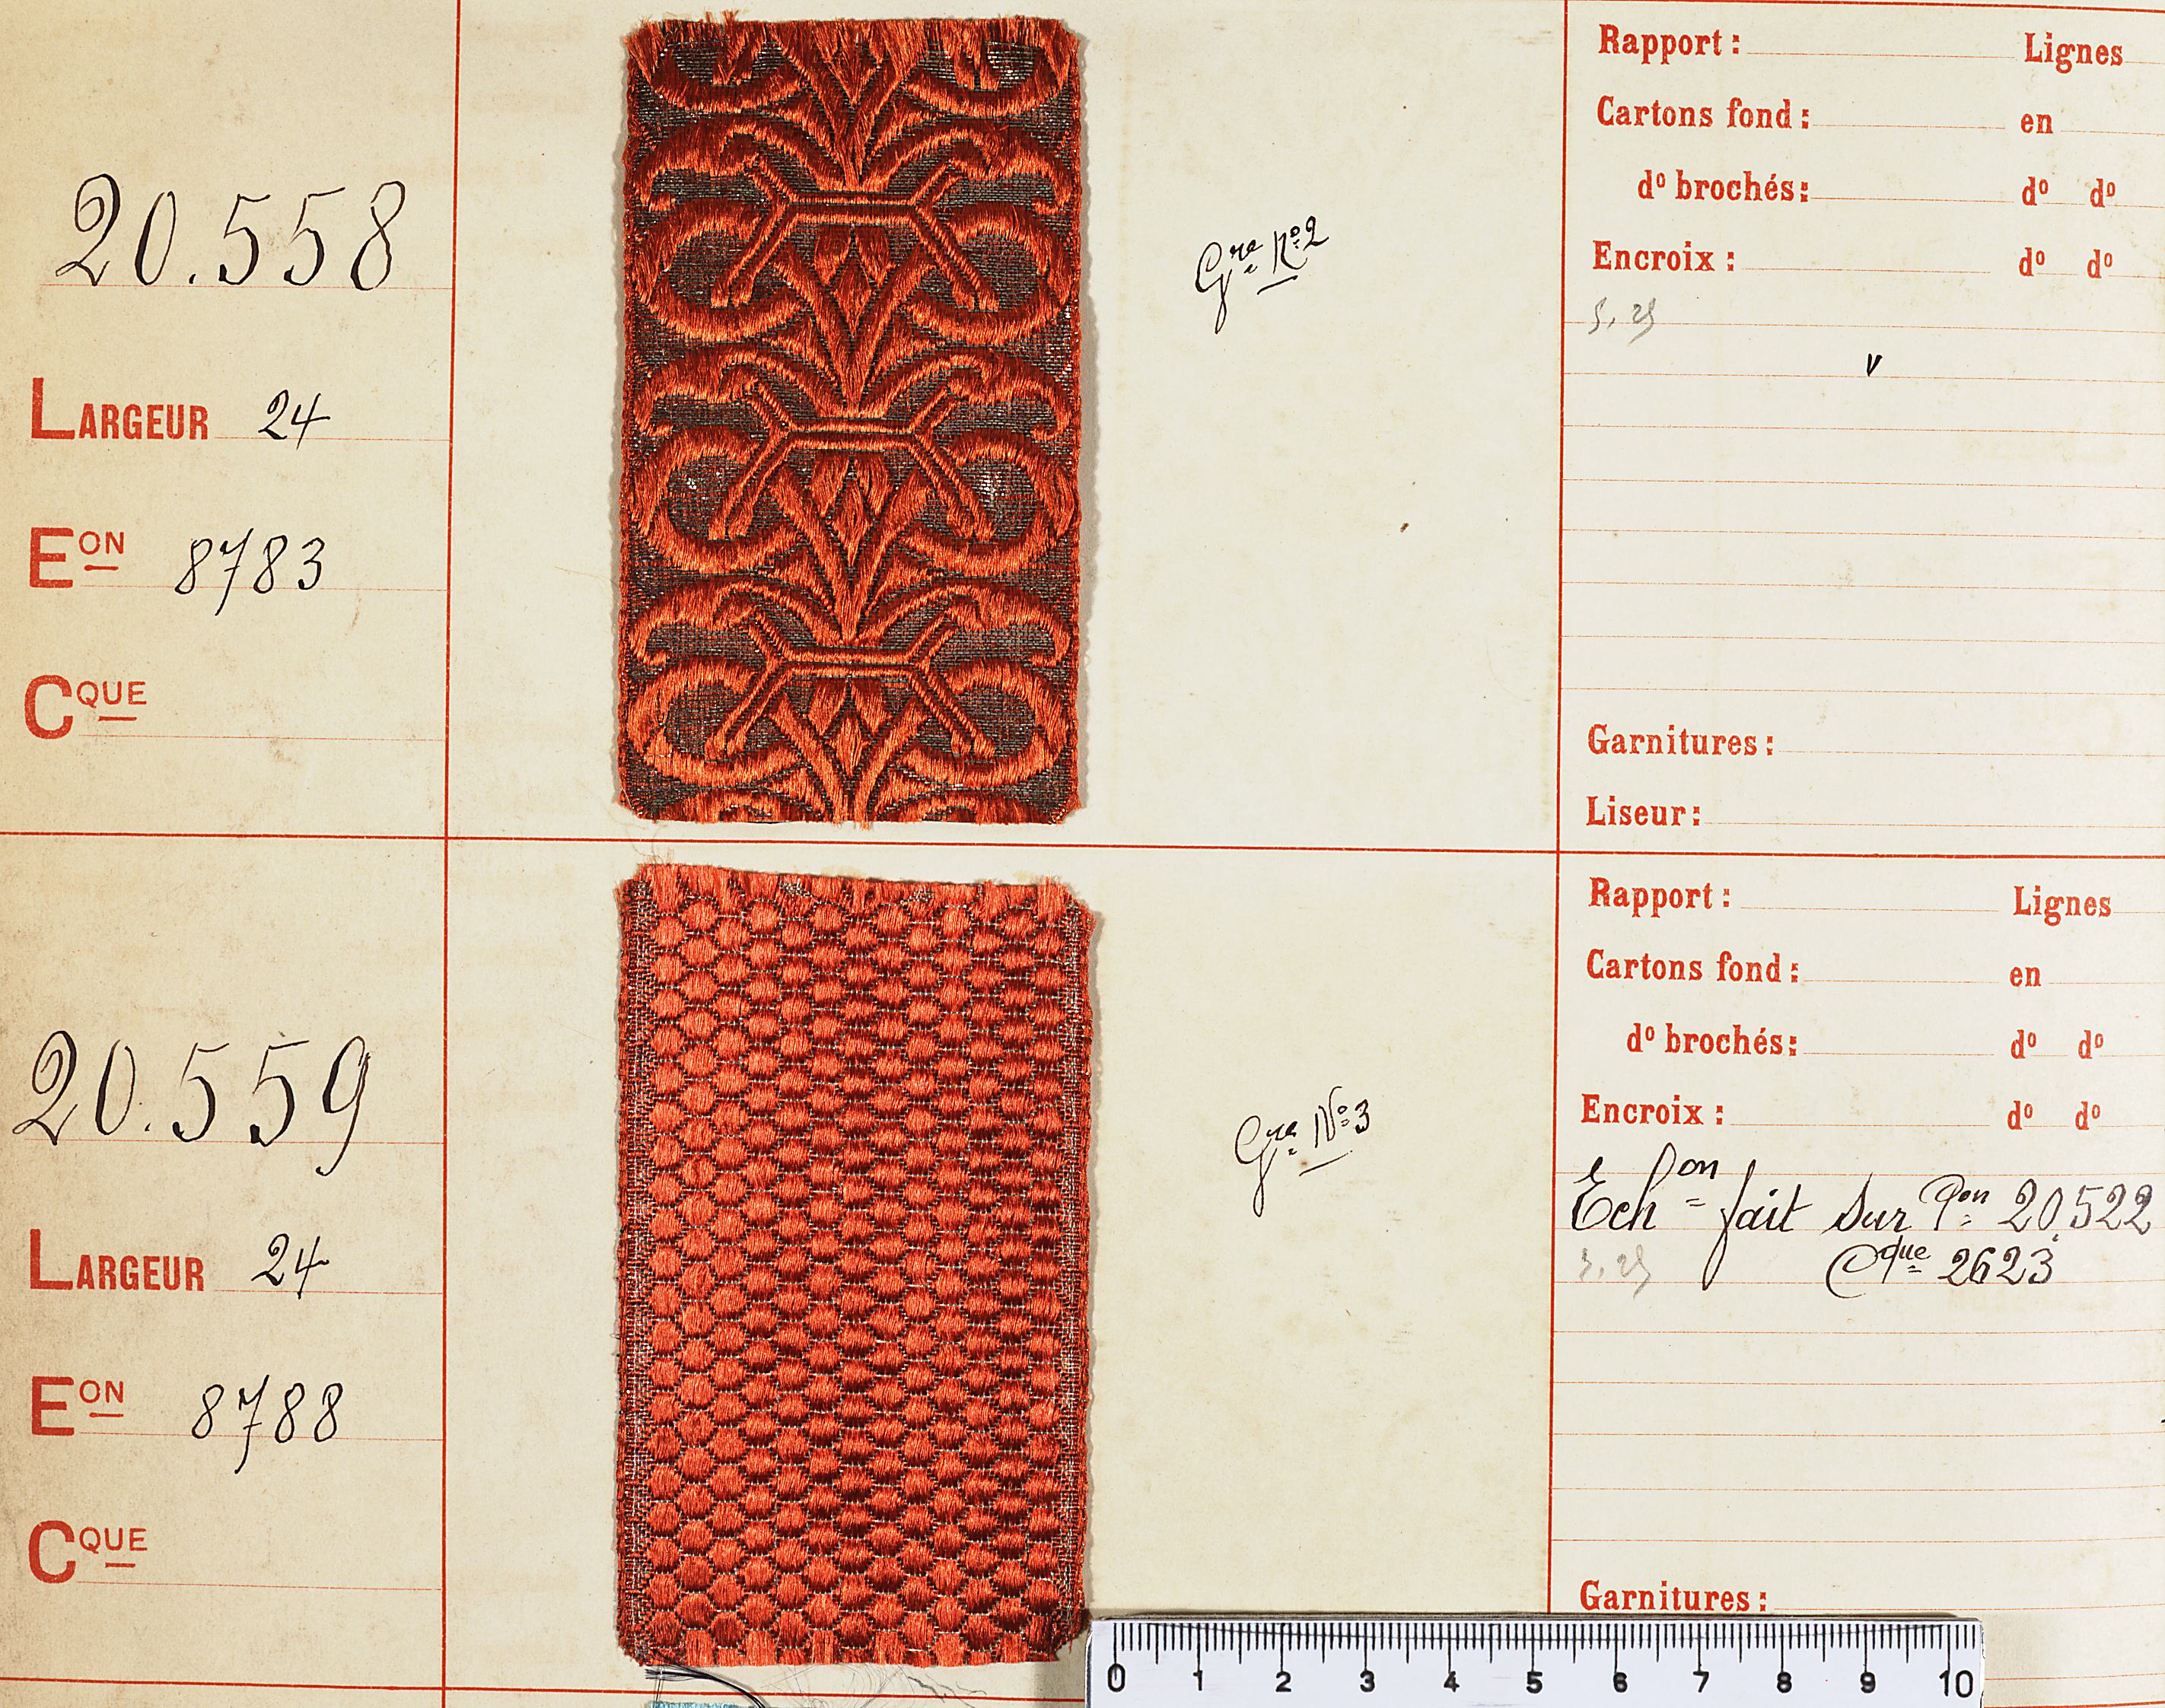 20.558
LARGEUR 24
EON 8783
CQUE
Gre No 2
Rapport : Lignes
Cartons fond : en
do brochés : do do
Encroix : do do
v
Garnitures :
Liseur :
20.559
LARGEUR 24
EON 8788
CQUE
Gre No 3
Rapport : Lignes
Cartons fond : en
do brochés : do do
Encroix : do do
Echon fait sur Pon 20522
Cque 2623
Garnitures :
0 1 2 3 4 5 6 7 8 9 10